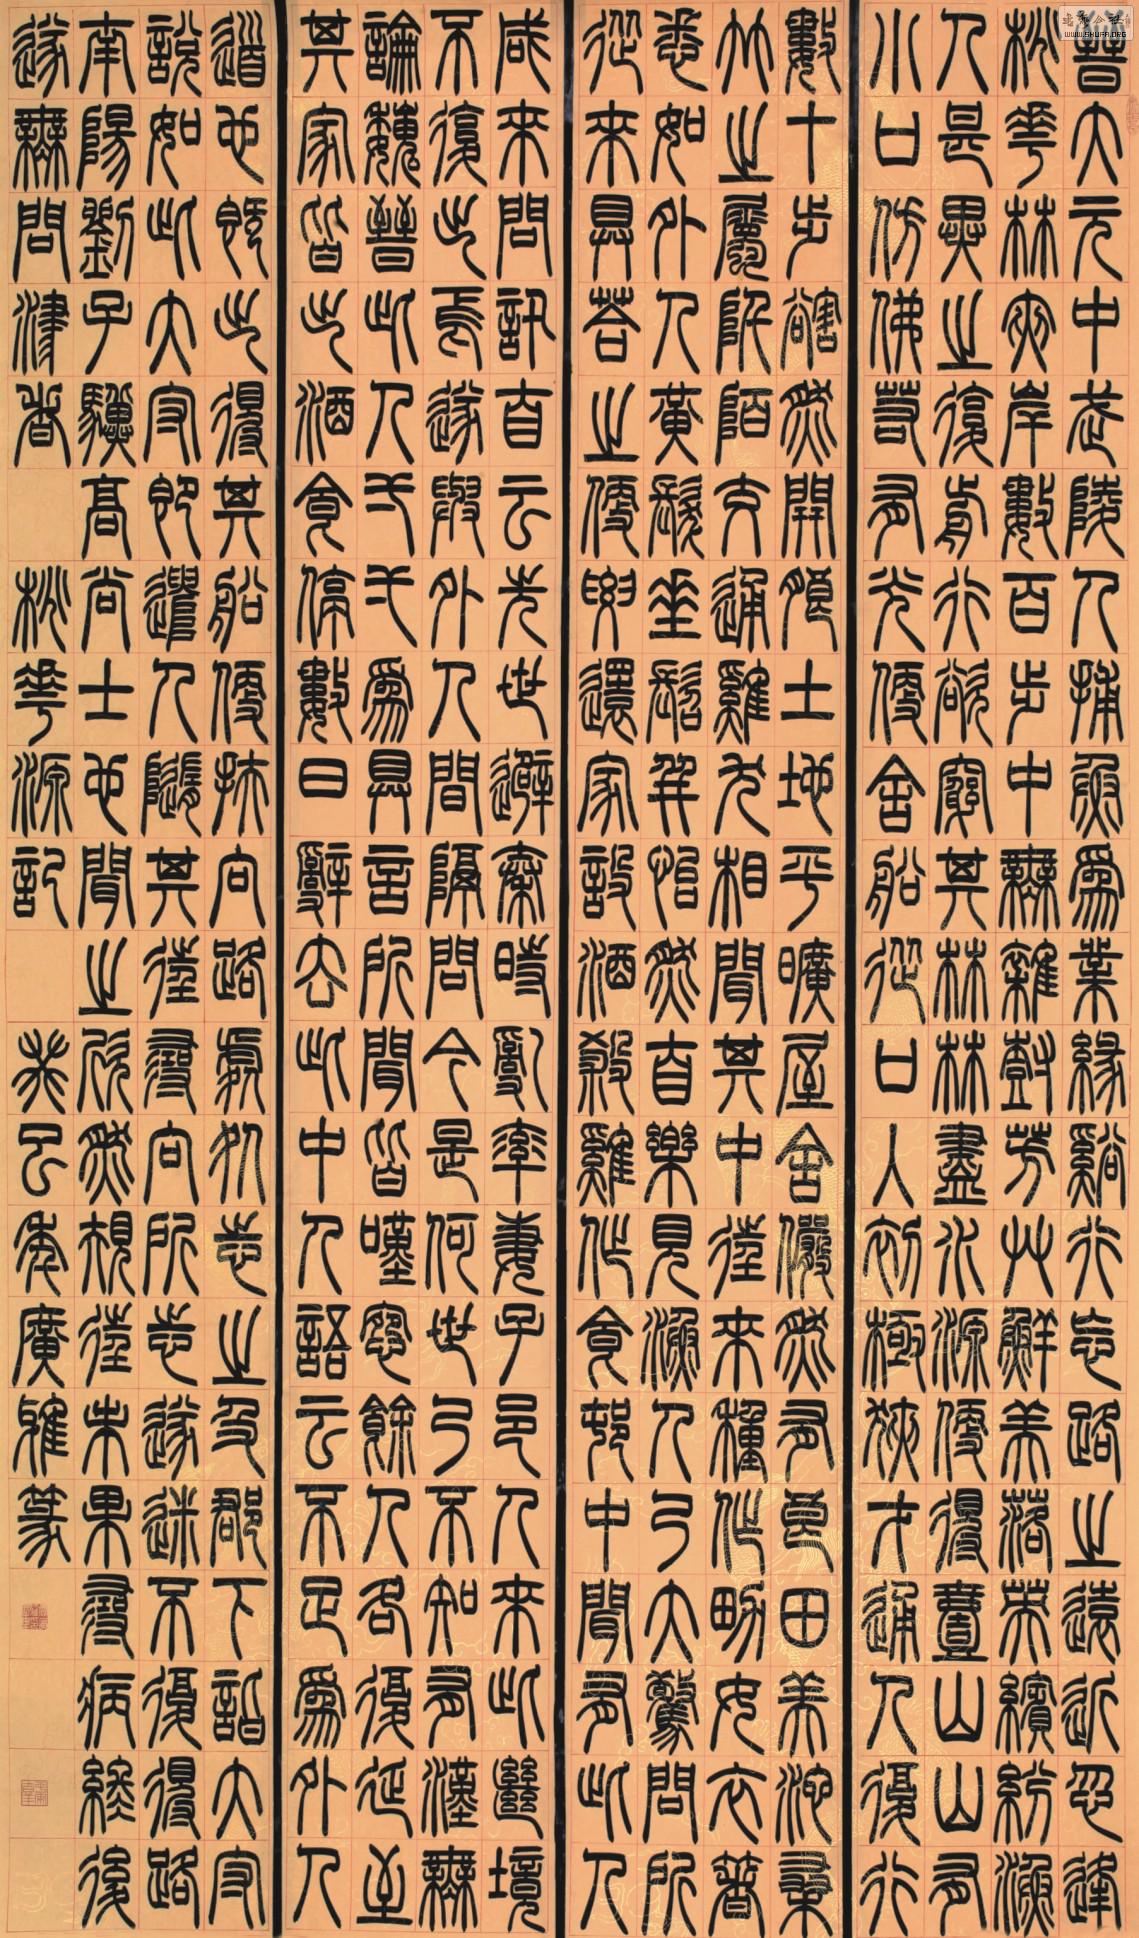 晉大元中武陵人捕魚為業緣谿行忘路之遠近忽逢
桃華林夾岸數百步中無雜樹芳艸鮮美落英繽紛漁
人甚異之復前行欲窮其林林盡水源便得壹山山有
小口仿佛若有光便舍船從口入初極狹才通人復行
數十步豁然開朗土地平曠屋舍儼然有良田美池桑
竹之屬阡陌交通雞犬相聞其中往來種作男女衣著
悉如外人黃髮垂髫並怡然自樂見漁人乃大驚問所
從來具答之便要還家設酒殺雞作食邨中聞有此人
咸來問訊自云先世避秦時亂率妻子邑人來此絕境
不復出焉遂與外人間隔問今是何世乃不知有漢無
論魏晉此人弌弌為具言所聞皆嘆惋餘人各復延至
其家皆出酒食停數日辭去此中人語云不足為外人
道也既出得其船便扶向路處処志之及郡下詣大守
說如此大守即遣人隨其往尋向所志遂迷不復得路
南陽劉子驥高尚士也聞之欣然規往未果尋病終後
遂無問津者 桃華源記 癸巳年廣雄篆